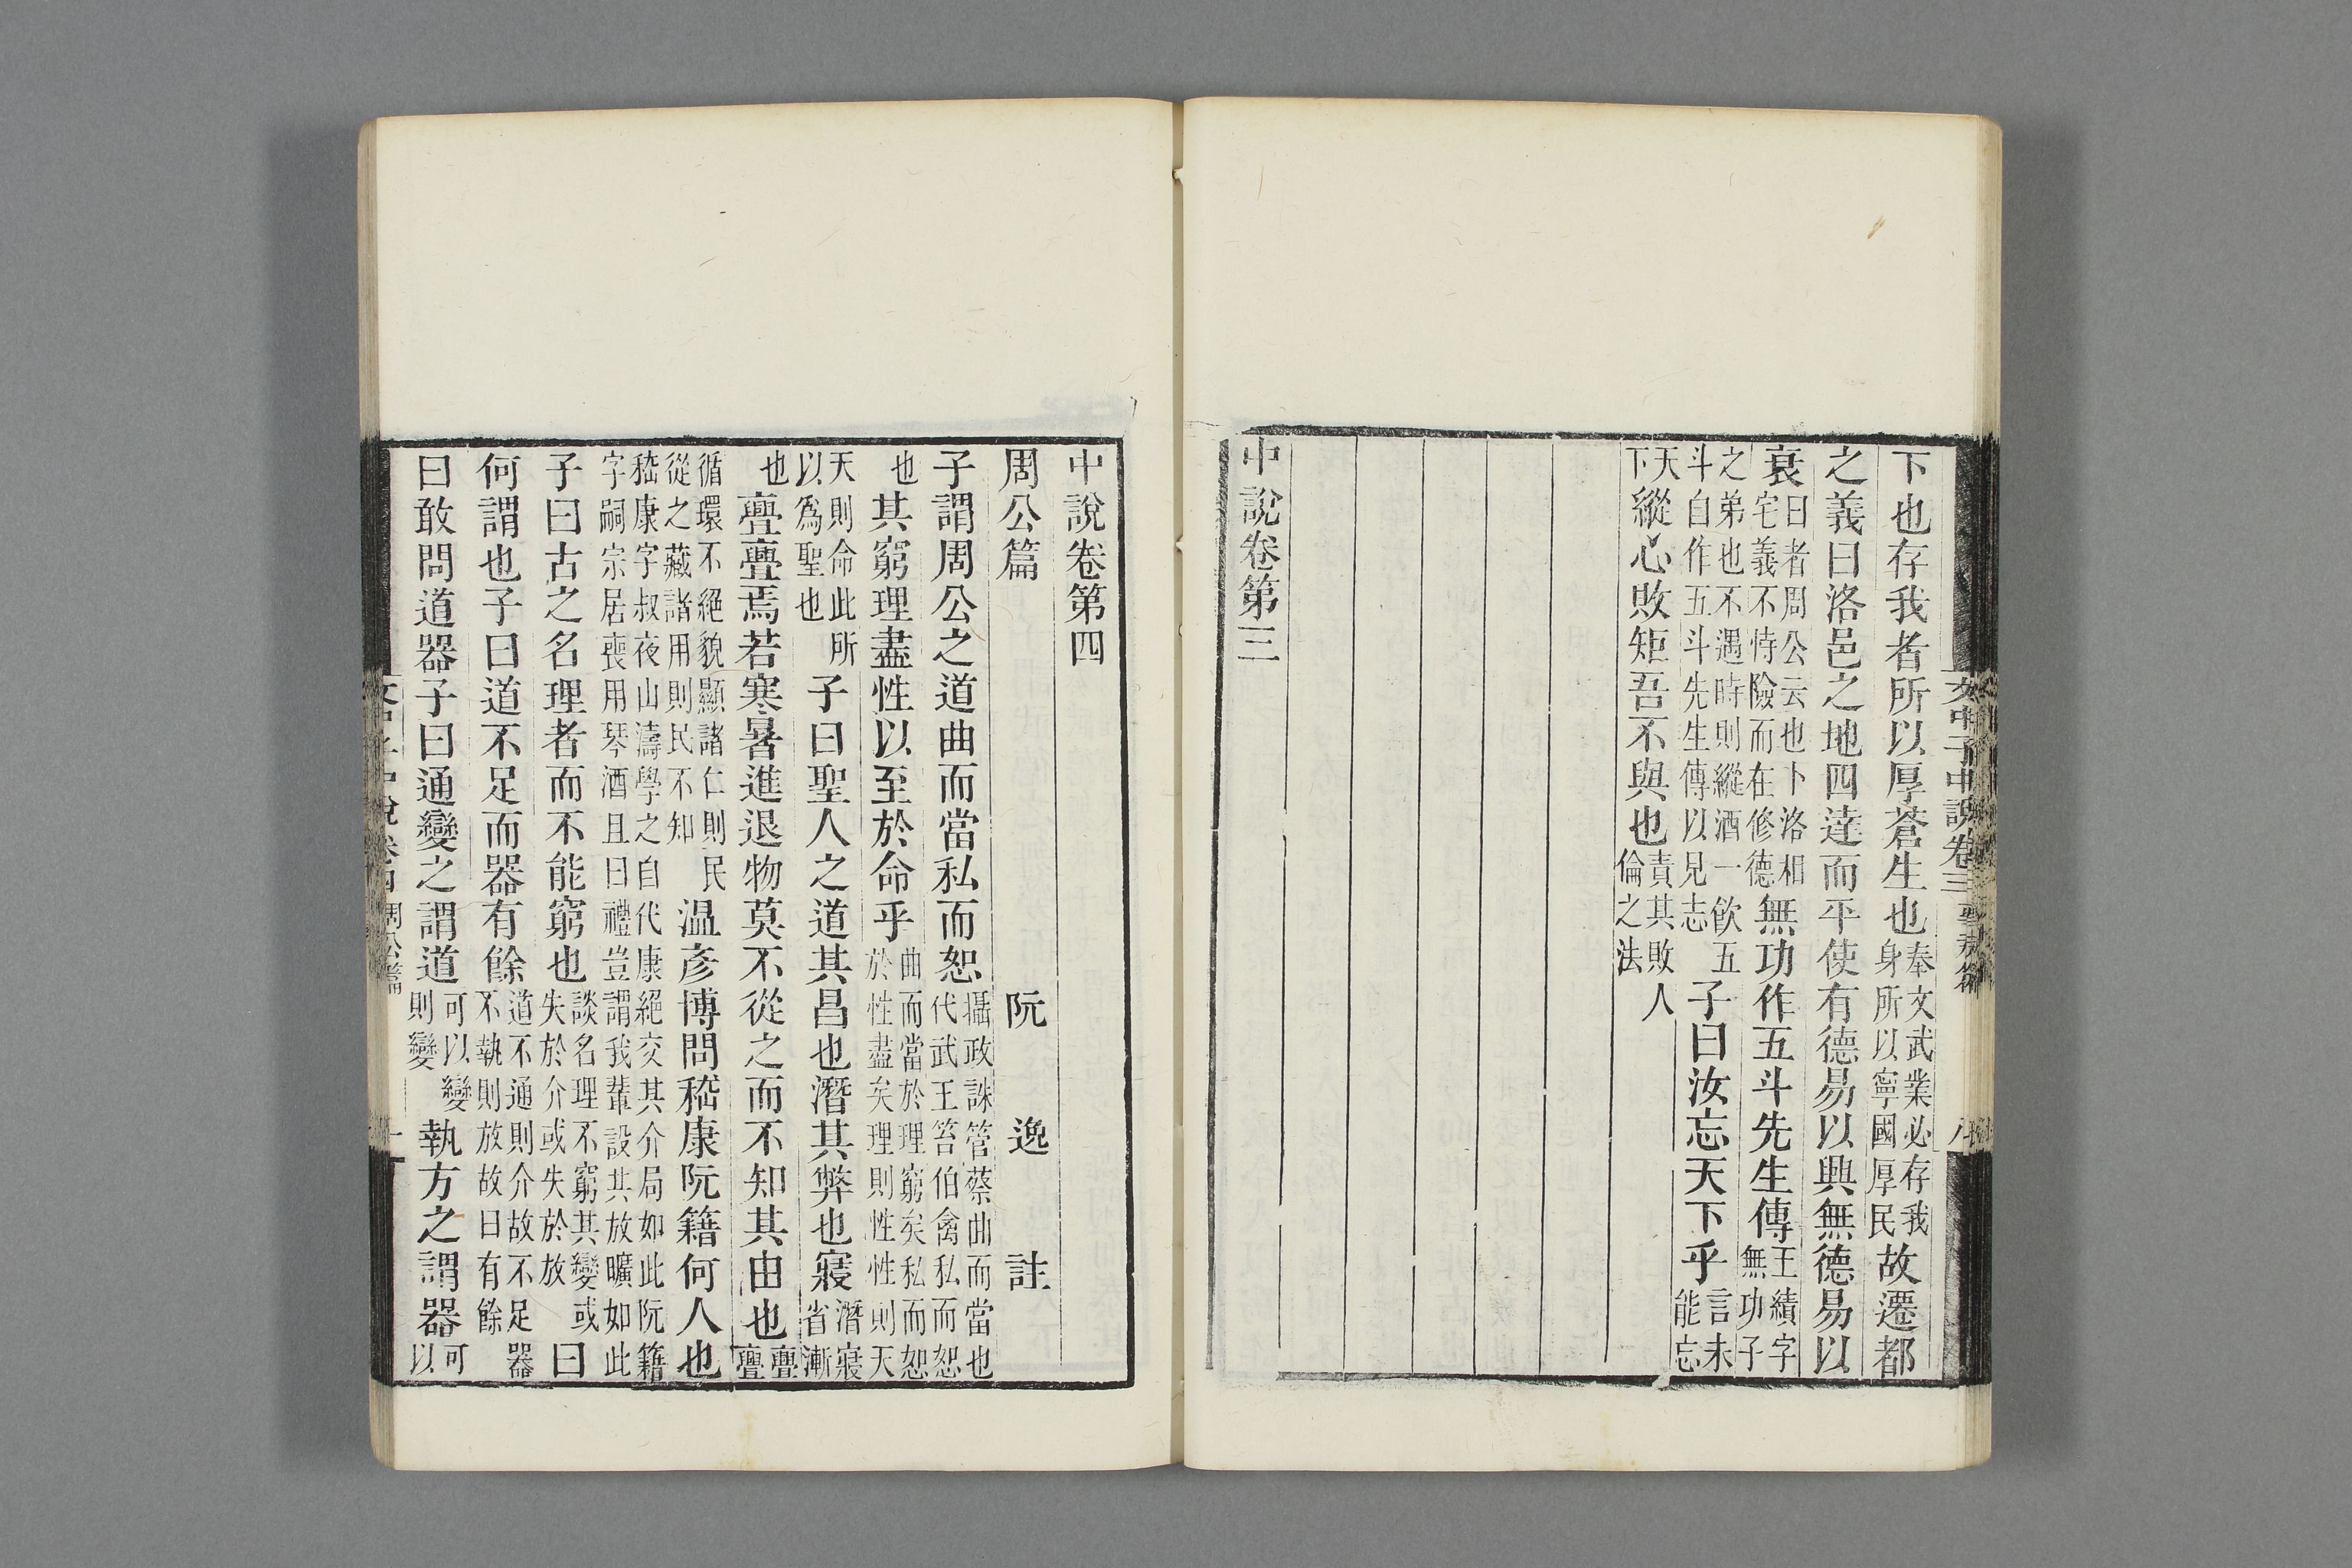 下也存我者所以厚蒼生也奉文武業必存我身所以寧國厚民故遷都
之義曰洛邑之地四達而平使有德易以興無德易以
衰曰者周公云也卜洛相宅義不恃險而在修德無功作五斗先生傳王績字無功子
之弟也不遇時則縱酒一飲五斗自作五斗先生傳以見志子曰汝忘天下乎言未能忘
天下縱心敗矩吾不與也責其敗人倫之法
中說卷第三
文中子中說卷三
八
中說卷第四
周公篇 阮逸註
子謂周公之道曲而當私而恕攝政誅管蔡曲而當也代武王笞伯禽私而恕
也其窮理盡性以至於命乎曲而當於理窮矣私而恕於性盡矣理則性性則天
天則命此所以為聖也子曰聖人之道其昌也潛其弊也寢潛寢省漸
也亹亹焉若寒暑進退物莫不從之而不知其由也亹亹
循環不絕貌顯諸仁則民從之藏諸用則民不知溫彥博問嵇康阮籍何人也
嵇康字叔夜山濤學之自代康絕交其介局如此阮籍字嗣宗居喪用琴酒且曰禮豈謂我輩設其放曠如此
子曰古之名理者而不能窮也談名理不窮其變或失於介或失於放曰
何謂也子曰道不足而器有餘道不通則介故不足器不執則放故曰有餘
曰敢問道器子曰通變之謂道可以變則變執方之謂器可以
周公篇
一